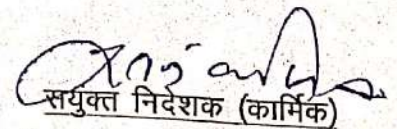 सयुक्त निदेशक (कार्मिक)